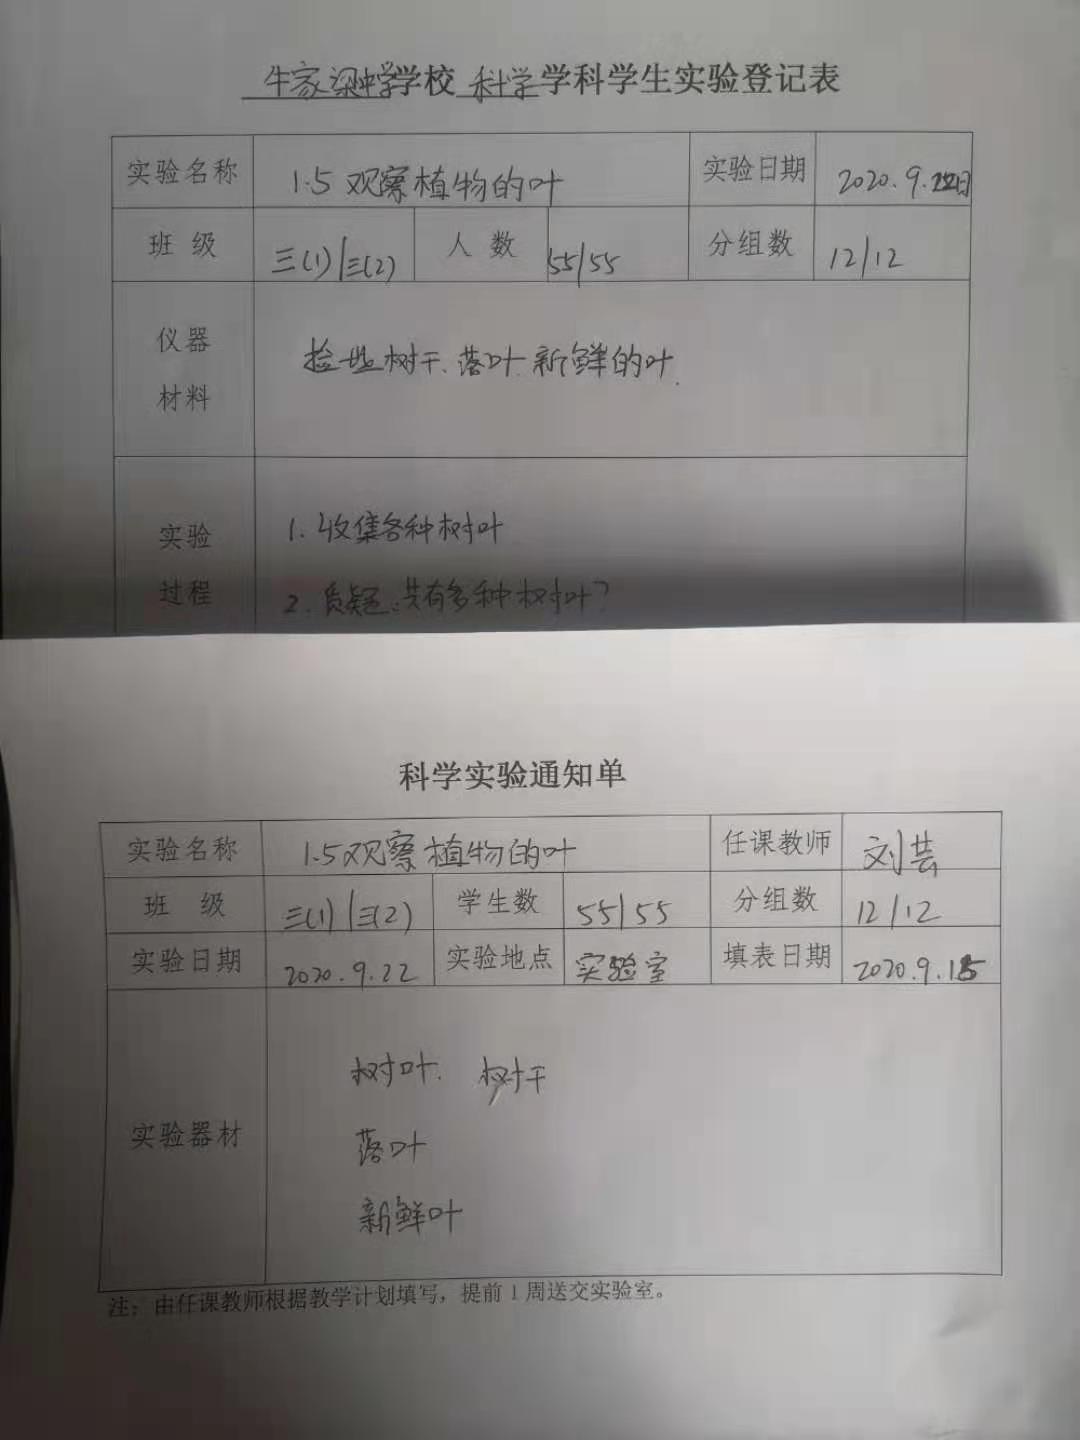 牛家梁中学学校 科学学科学生实验登记表
实验名称 1.5 观察植物的叶 实验日期 2020.9.22日
班 级 三(1)/三(2) 人 数 55/55 分组数 12/12
仪器
材料
捡些树干、落叶、新鲜的叶.
实验
过程
1. 收集各种树叶
2. 质疑:共有多种树叶?
科学实验通知单
实验名称 1.5 观察植物的叶 任课教师 刘芸
班 级 三(1)/三(2) 学生数 55/55 分组数 12/12
实验日期 2020.9.22 实验地点 实验室 填表日期 2020.9.15
实验器材
树叶. 树干
落叶
新鲜叶
注：由任课教师根据教学计划填写，提前1周送交实验室。